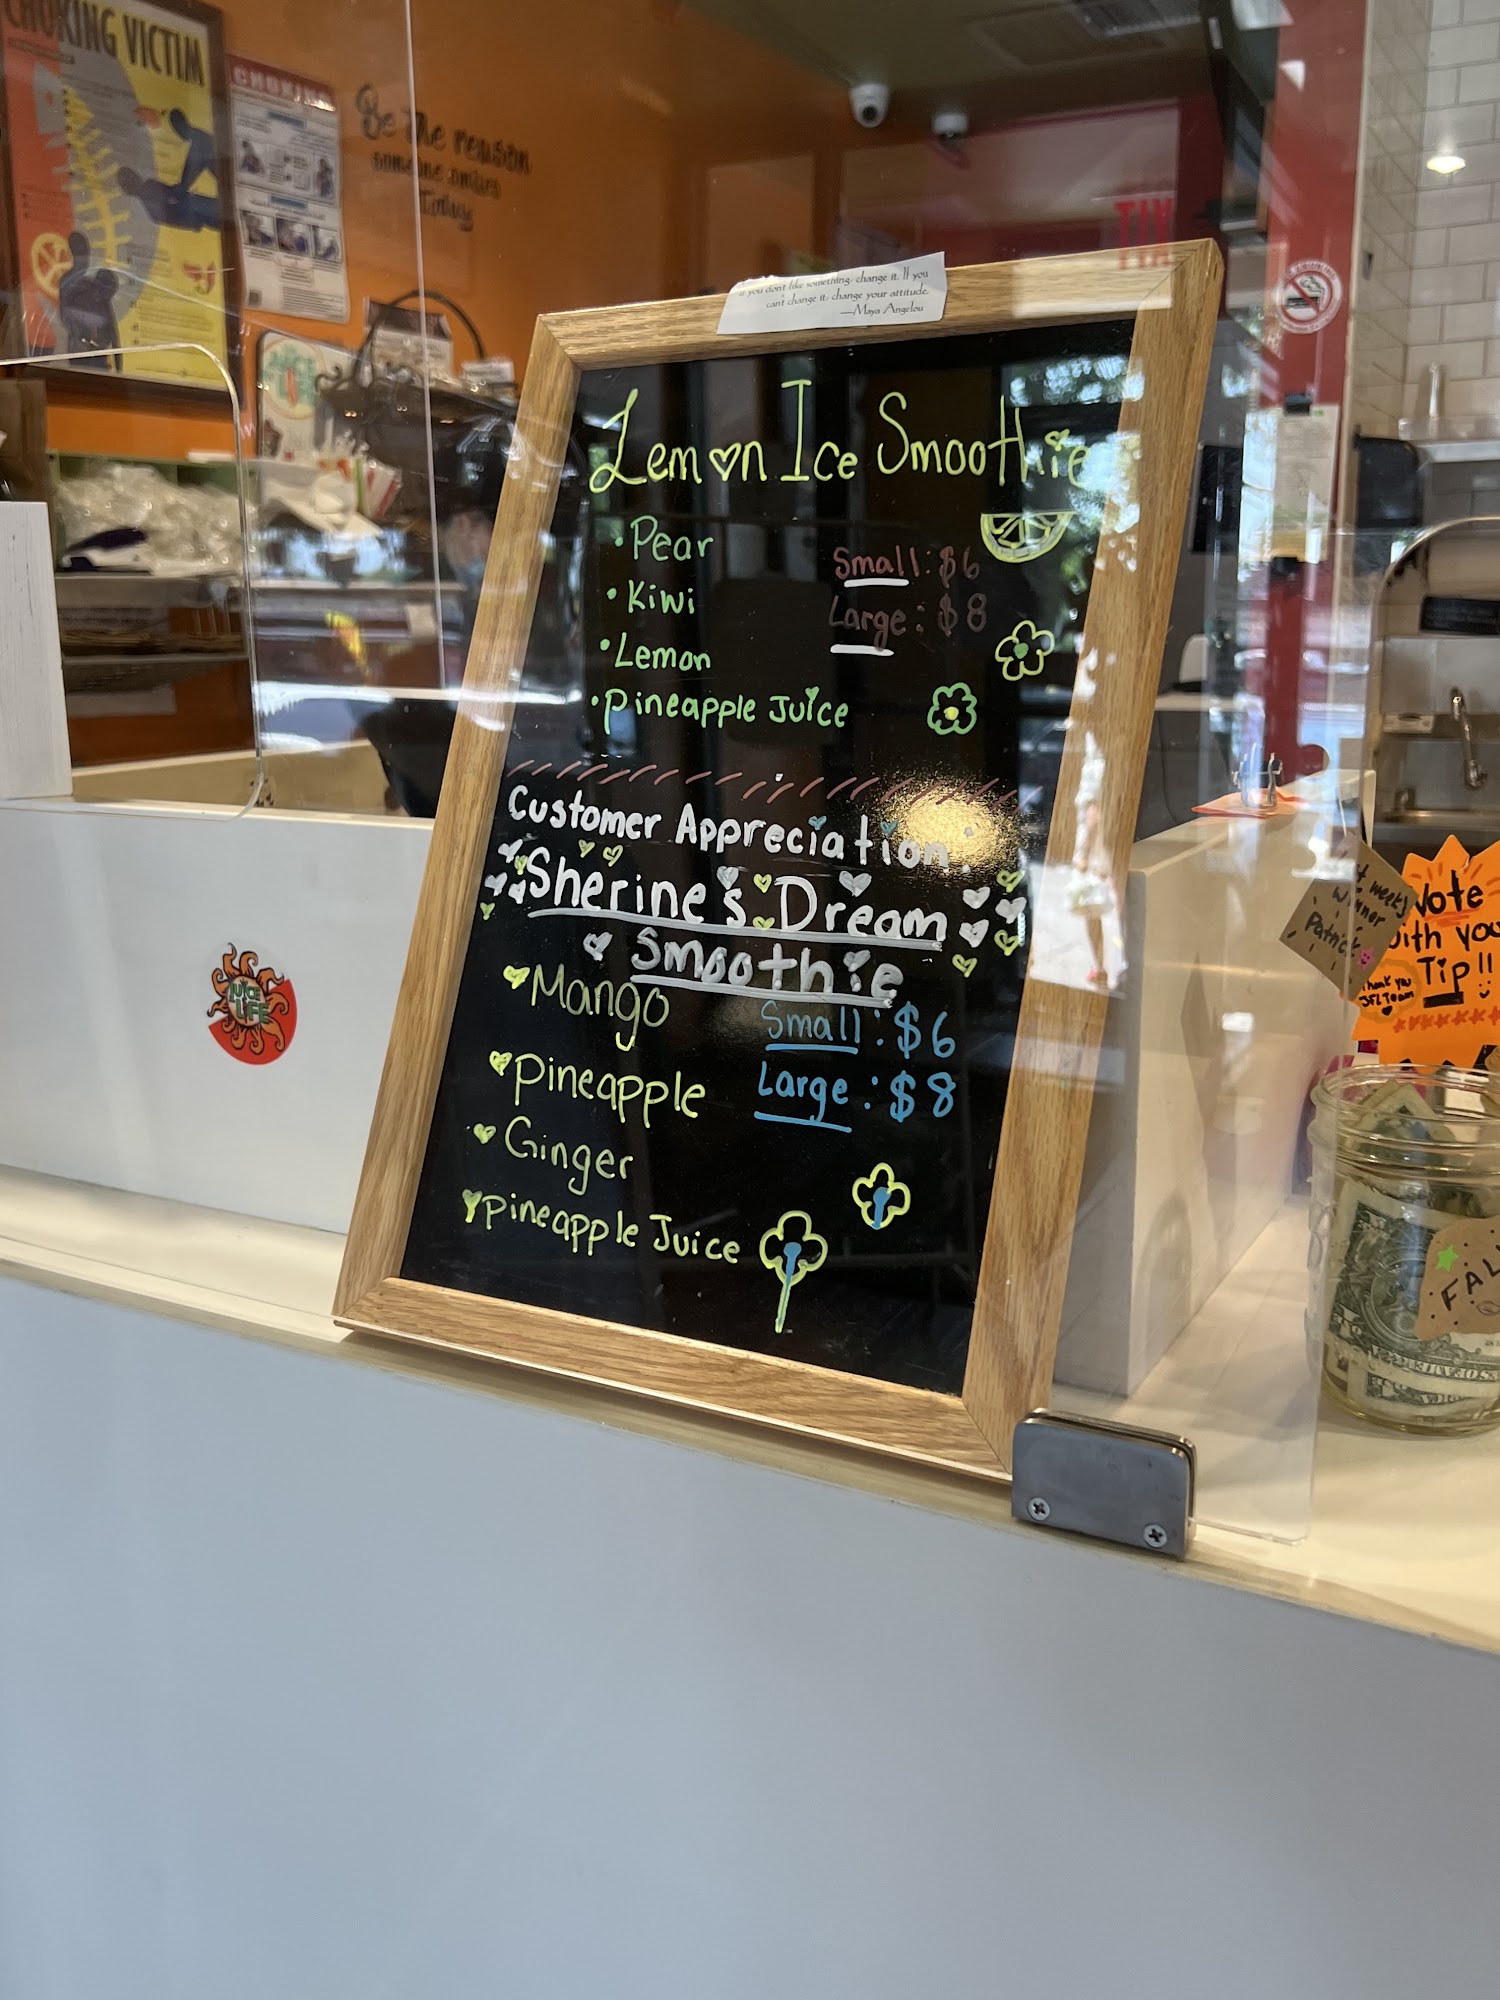 CHOKING VICTIM
CHOKING
Be the reason
someone smiles
Today
EXIT
If you don't like something, change it. If you
can't change it, change your attitude.
—Maya Angelou
Lemon Ice Smoothie
• Pear
• Kiwi
• Lemon
• Pineapple Juice
Small: $6
Large: $8
Customer Appreciation
Sherine's Dream
Smoothie
Mango
Pineapple
Ginger
Pineapple Juice
Small: $6
Large: $8
JUICE
LIFE
Patrick
Vote
with you
Tip!!
Thank you
JFL Team
FAL